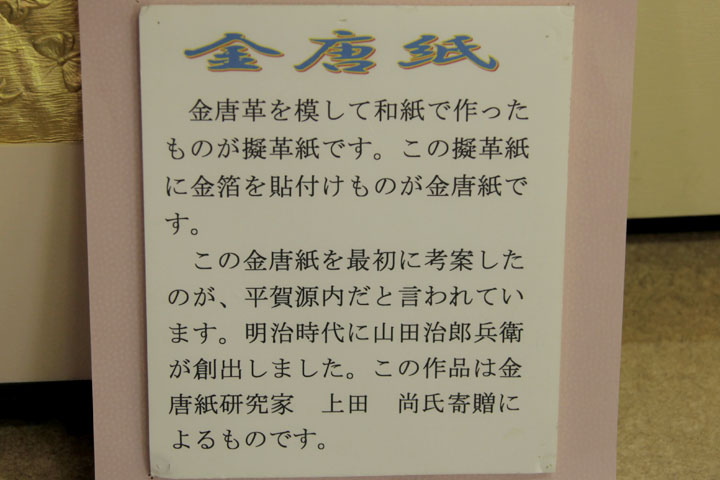 金唐紙
金唐革を模して和紙で作った
ものが擬革紙です。この擬革紙
に金箔を貼付けものが金唐紙で
す。
この金唐紙を最初に考案した
のが、平賀源内だと言われてい
ます。明治時代に山田治郎兵衛
が創出しました。この作品は金
唐紙研究家　上田　尚氏寄贈に
よるものです。